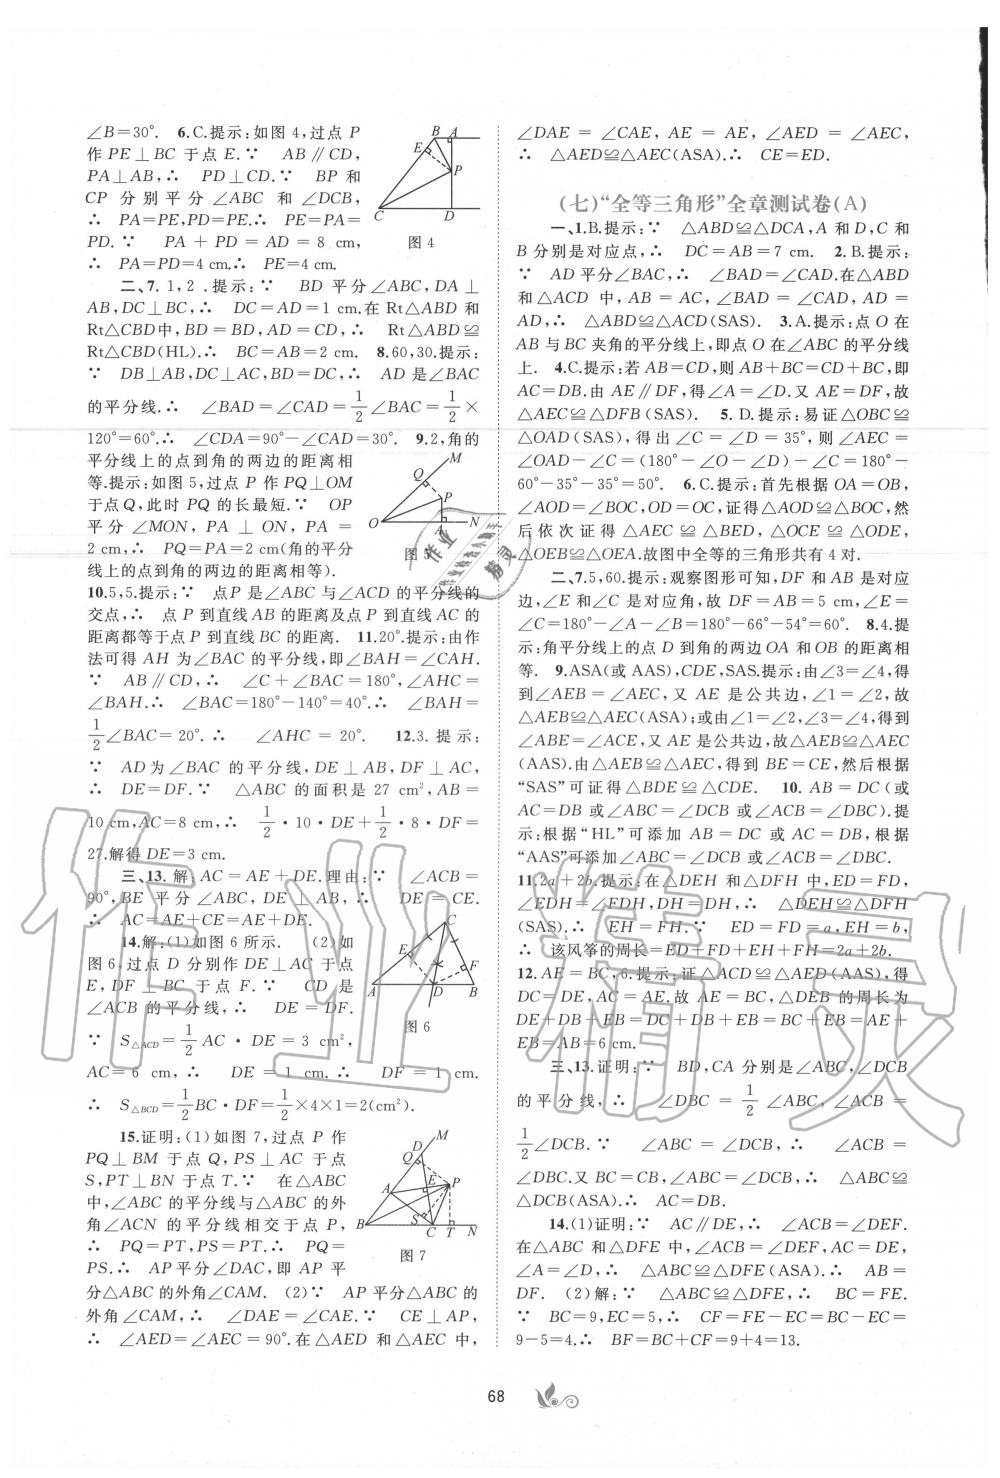 ∠B=30°. 6.C.提示:如图 4,过点 P
作 PE⊥BC 于点 E.∵ AB∥CD,
PA⊥AB,∴ PD⊥CD.∵ BP 和
CP 分别平分∠ABC 和∠DCB,
∴ PA=PE,PD=PE.∴ PE=PA=
PD.∵ PA+PD=AD=8 cm,
∴ PA=PD=4 cm.∴ PE=4 cm.
B A E P C D
图 4
二、7.1,2 .提示:∵ BD 平分∠ABC,DA⊥
AB,DC⊥BC,∴ DC=AD=1 cm.在 Rt△ABD 和
Rt△CBD中,BD=BD,AD=CD,∴ Rt△ABD≌
Rt△CBD(HL).∴ BC=AB=2 cm. 8.60,30.提示:
∵ DB⊥AB,DC⊥AC,DB=DC,∴ AD 是∠BAC
的平分线.∴ ∠BAD=∠CAD=1/2∠BAC=1/2×
120°=60°.∴ ∠CDA=90°-∠CAD=30°. 9.2,角的
平分线上的点到角的两边的距离相
等.提示:如图 5,过点 P 作 PQ⊥OM
于点 Q,此时 PQ 的长最短.∵ OP
平分∠MON,PA⊥ON,PA=
2 cm,∴ PQ=PA=2 cm(角的平分
线上的点到角的两边的距离相等).
M Q P O A N
图 5
10.5,5.提示:∵ 点P 是∠ABC 与∠ACD 的平分线的
交点,∴ 点 P 到直线 AB 的距离及点 P 到直线 AC 的
距离都等于点 P 到直线 BC 的距离. 11.20°.提示:由作
法可得 AH 为∠BAC 的平分线,即∠BAH=∠CAH.
∵ AB∥CD,∴ ∠C+∠BAC=180°,∠AHC=
∠BAH.∴ ∠BAC=180°-140°=40°.∴ ∠BAH=
1/2∠BAC=20°.∴ ∠AHC=20°. 12.3.提示:
∵ AD为∠BAC 的平分线,DE⊥AB,DF⊥AC,
∴ DE=DF.∵ △ABC 的面积是 27 cm²,AB=
10 cm,AC=8 cm,∴ 1/2·10·DE+1/2·8·DF=
27.解得 DE=3 cm.
三、13.解:AC=AE+DE.理由:∵ ∠ACB=
90°,BE 平分∠ABC,DE⊥AB,∴ DE=CE.
∴ AC=AE+CE=AE+DE.
14.解:(1)如图 6 所示. (2)如
图 6,过点 D 分别作 DE⊥AC 于点
E,DF⊥BC 于点 F.∵ CD 是
∠ACB 的平分线,∴ DE=DF.
∵ S△ACD=1/2AC·DE=3 cm²,
C E F A D B
图 6
AC=6 cm,∴ DE=1 cm.∴ DF=1 cm.
∴ S△BCD=1/2BC·DF=1/2×4×1=2(cm²).
15.证明:(1)如图 7,过点 P 作
PQ⊥BM 于点 Q,PS⊥AC 于点
S,PT⊥BN 于点 T.∵ 在△ABC
中,∠ABC 的平分线与△ABC 的外
角∠ACN 的平分线相交于点 P,
∴ PQ=PT,PS=PT.∴ PQ=
PS.∴ AP平分∠DAC,即 AP 平
D M Q A E P S B C T N
图 7
分△ABC 的外角∠CAM. (2)∵ AP平分△ABC 的
外角∠CAM,∴ ∠DAE=∠CAE.∵ CE⊥AP,
∴ ∠AED=∠AEC=90°.在△AED 和△AEC 中,
∠DAE=∠CAE,AE=AE,∠AED=∠AEC,
∴ △AED≌△AEC(ASA).∴ CE=ED.
(七)“全等三角形”全章测试卷(A)
一、1.B.提示:∵ △ABD≌△DCA,A 和 D,C 和
B 分别是对应点,∴ DC=AB=7 cm. 2.B.提示:
∵ AD平分∠BAC,∴ ∠BAD=∠CAD.在△ABD
和△ACD 中,AB=AC,∠BAD=∠CAD,AD=
AD,∴ △ABD≌△ACD(SAS). 3.A.提示:点 O 在
AB 与 BC 夹角的平分线上,即点 O 在∠ABC 的平分线
上. 4.C.提示:若 AB=CD,则 AB+BC=CD+BC,即
AC=DB.由 AE∥DF,得∠A=∠D.又 AE=DF,故
△AEC≌△DFB(SAS). 5.D.提示:易证△OBC≌
△OAD(SAS),得出∠C=∠D=35°,则∠AEC=
∠OAD-∠C=(180°-∠O-∠D)-∠C=180°-
60°-35°-35°=50°. 6.C.提示:首先根据 OA=OB,
∠AOD=∠BOC,OD=OC,证得△AOD≌△BOC,然
后依次证得△AEC≌△BED,△OCE≌△ODE,
△OEB≌△OEA.故图中全等的三角形共有 4 对.
二、7.5,60.提示:观察图形可知,DF 和 AB 是对应
边,∠E 和∠C 是对应角,故 DF=AB=5 cm,∠E=
∠C=180°-∠A-∠B=180°-66°-54°=60°. 8.4.提
示:角平分线上的点 D 到角的两边OA 和OB 的距离相
等. 9.ASA(或 AAS),CDE,SAS.提示:由∠3=∠4,得
到∠AEB=∠AEC,又 AE 是公共边,∠1=∠2,故
△AEB≌△AEC(ASA);或由∠1=∠2,∠3=∠4,得到
∠ABE=∠ACE,又 AE 是公共边,故△AEB≌△AEC
(AAS).由△AEB≌△AEC,得到 BE=CE,然后根据
“SAS”可证得△BDE≌△CDE. 10.AB=DC(或
AC=DB 或∠ABC=∠DCB 或∠ACB=∠DBC).提
示:根据“HL”可添加 AB=DC 或 AC=DB,根据
“AAS”可添加∠ABC=∠DCB 或∠ACB=∠DBC.
11.2a+2b.提示:在△DEH 和△DFH 中,ED=FD,
∠EDH=∠FDH,DH=DH,∴ △DEH≌△DFH
(SAS).∴ EH=FH.∵ ED=FD=a,EH=b,
∴ 该风筝的周长=ED+FD+EH+FH=2a+2b.
12.AE=BC,6.提示:证△ACD≌△AED(AAS),得
DC=DE,AC=AE.故 AE=BC,△DEB 的周长为
DE+DB+EB=DC+DB+EB=BC+EB=AE+
EB=AB=6 cm.
三、13.证明:∵ BD,CA 分别是∠ABC,∠DCB
的平分线,∴ ∠DBC=1/2∠ABC,∠ACB=
1/2∠DCB.∵ ∠ABC=∠DCB,∴ ∠ACB=
∠DBC.又 BC=CB,∠ABC=∠DCB,∴ △ABC≌
△DCB(ASA).∴ AC=DB.
14.(1)证明:∵ AC∥DE,∴ ∠ACB=∠DEF.
在△ABC 和△DFE 中,∠ACB=∠DEF,AC=DE,
∠A=∠D,∴ △ABC≌△DFE(ASA).∴ AB=
DF. (2)解:∵ △ABC≌△DFE,∴ BC=FE.
∵ BC=9,EC=5,∴ CF=FE-EC=BC-EC=
9-5=4.∴ BF=BC+CF=9+4=13.
68
作业精灵